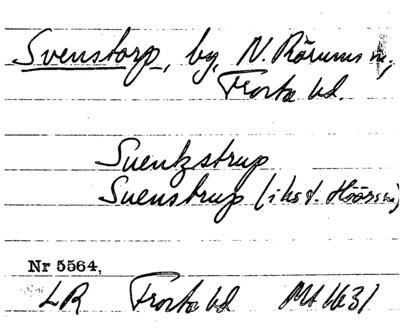 Svenstorp, by, N. Rörums sn,
Frosta hd.
Suentzstrup
Suenstrup (i ks t. Höörs sn)
Nr 5564,
LR Frosta hd Mt 1631